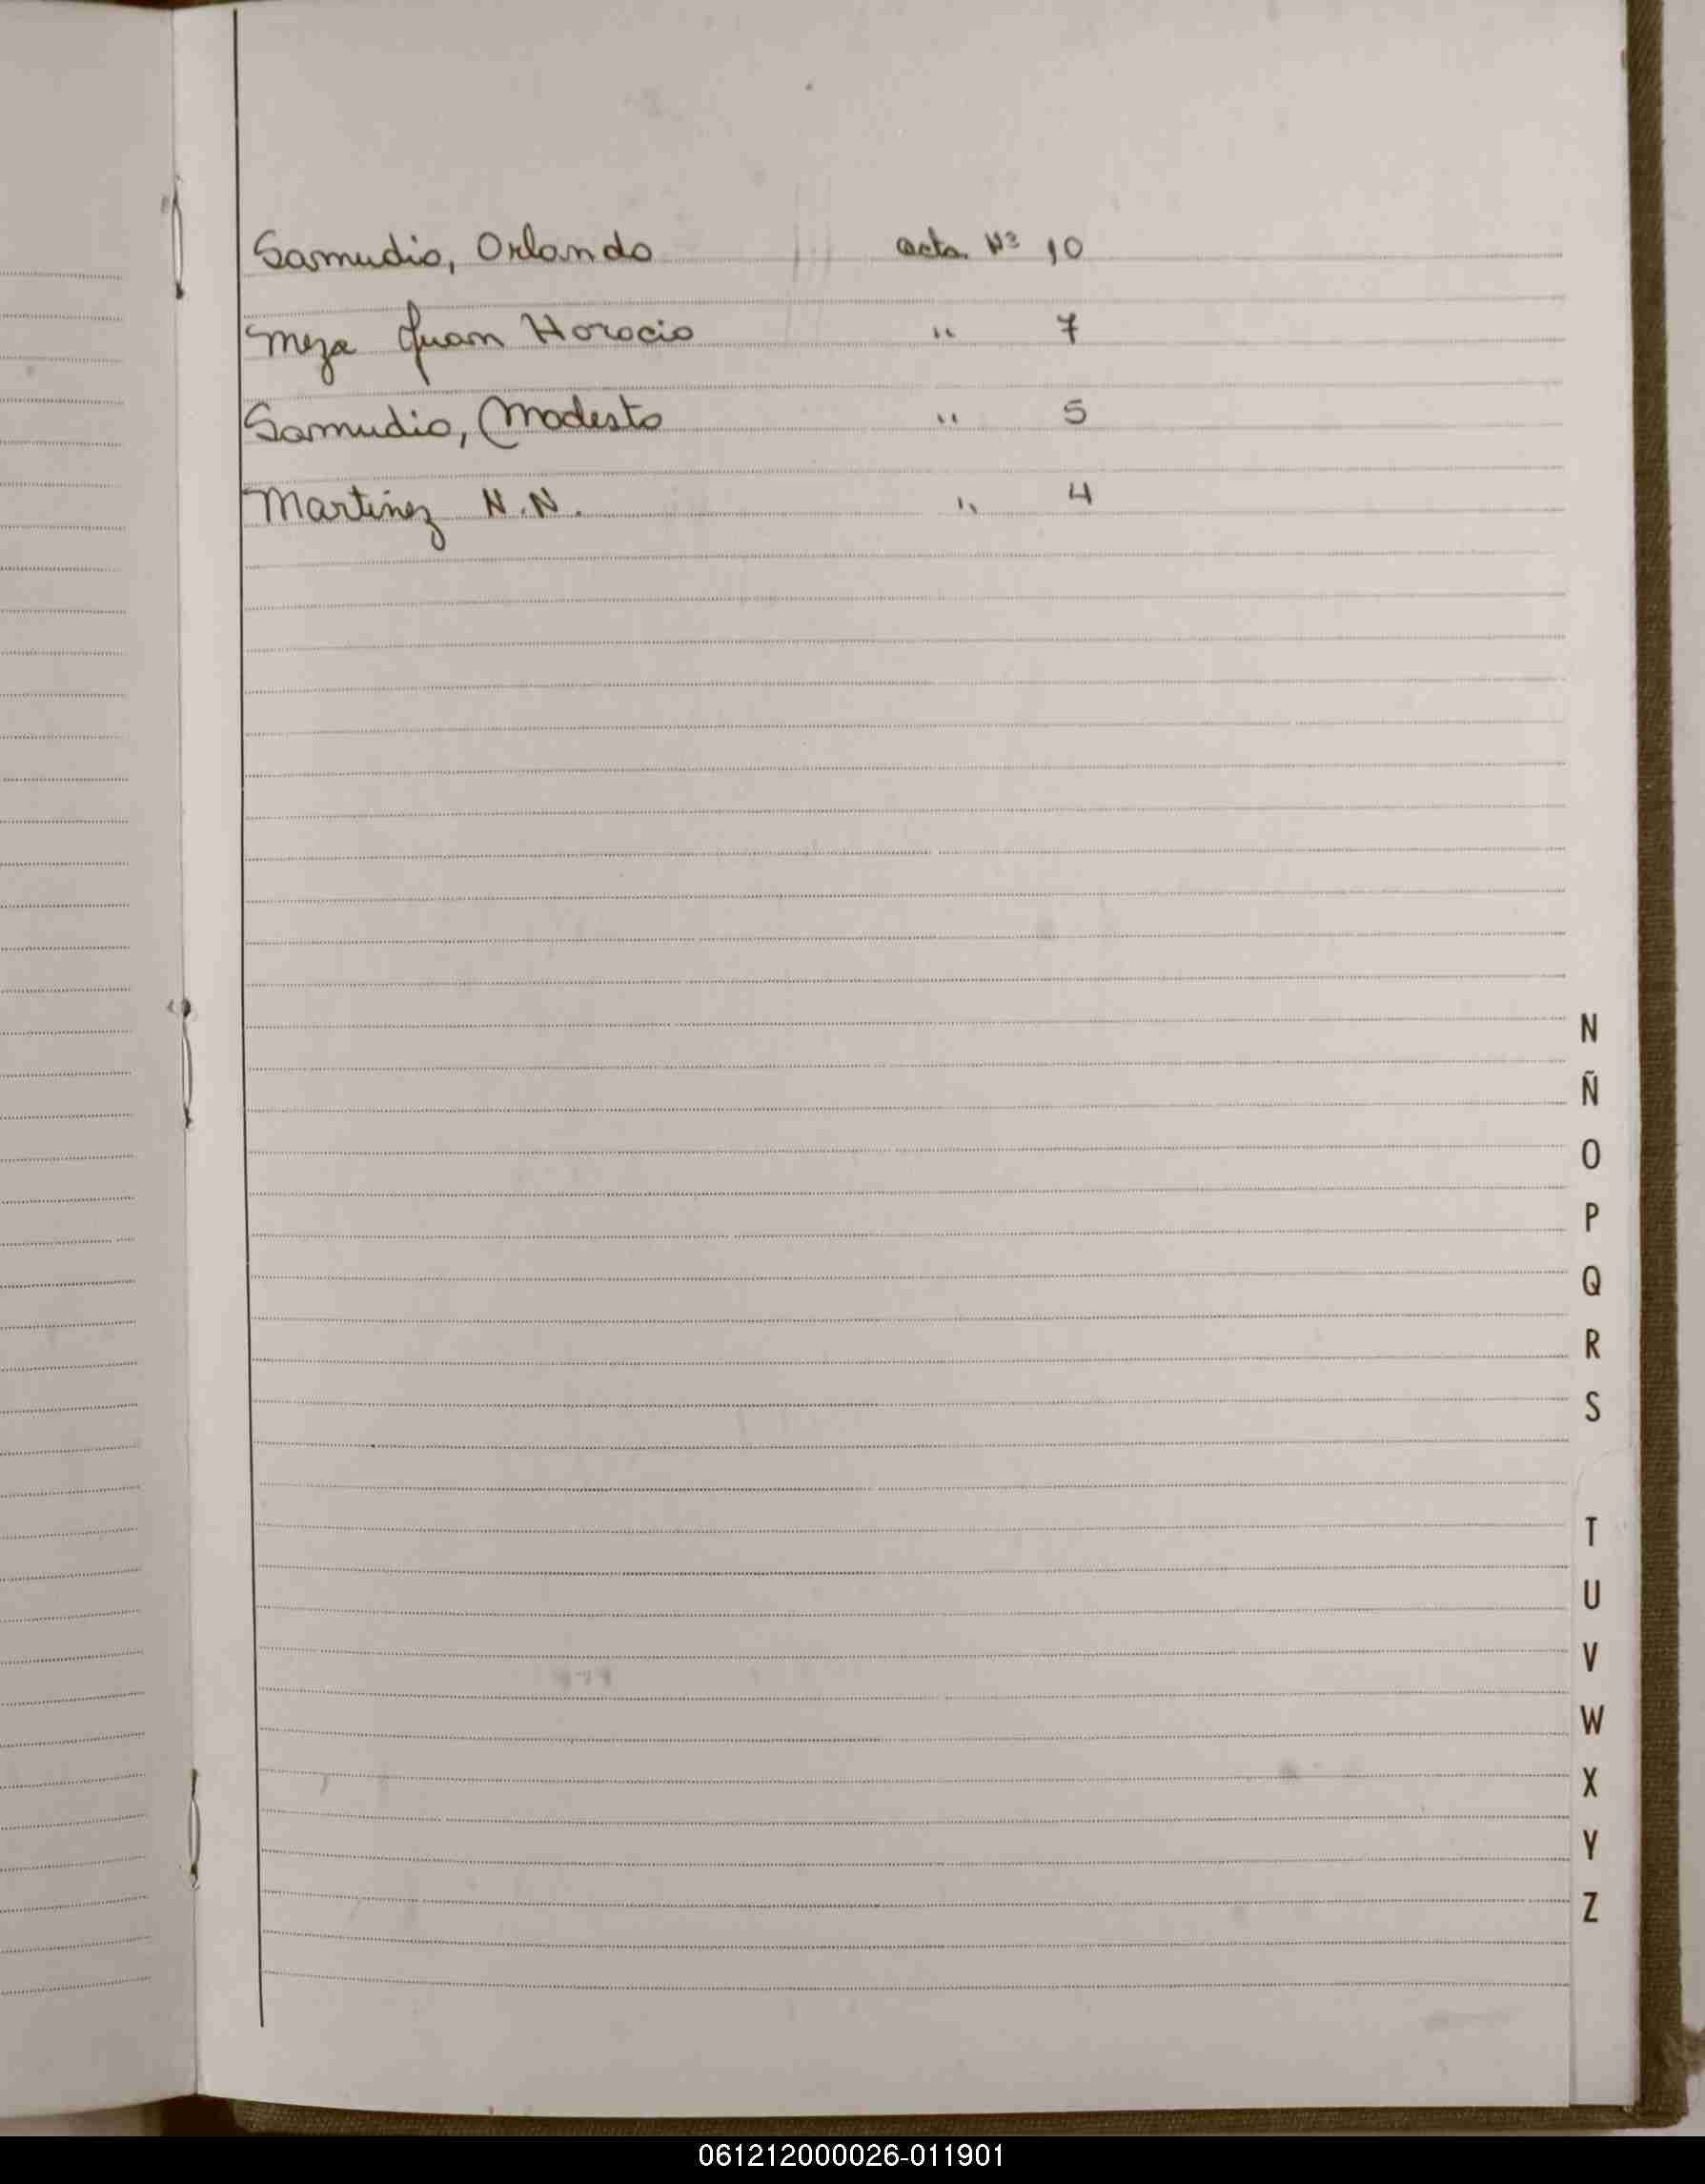 Samudio, Orlando acta Nº 10
Meza Juan Horacio " 7
Samudio, Modesto " 5
Martinez N.N. " 4
N
Ñ
O
P
Q
R
S
T
U
V
W
X
Y
Z
061212000026-011901